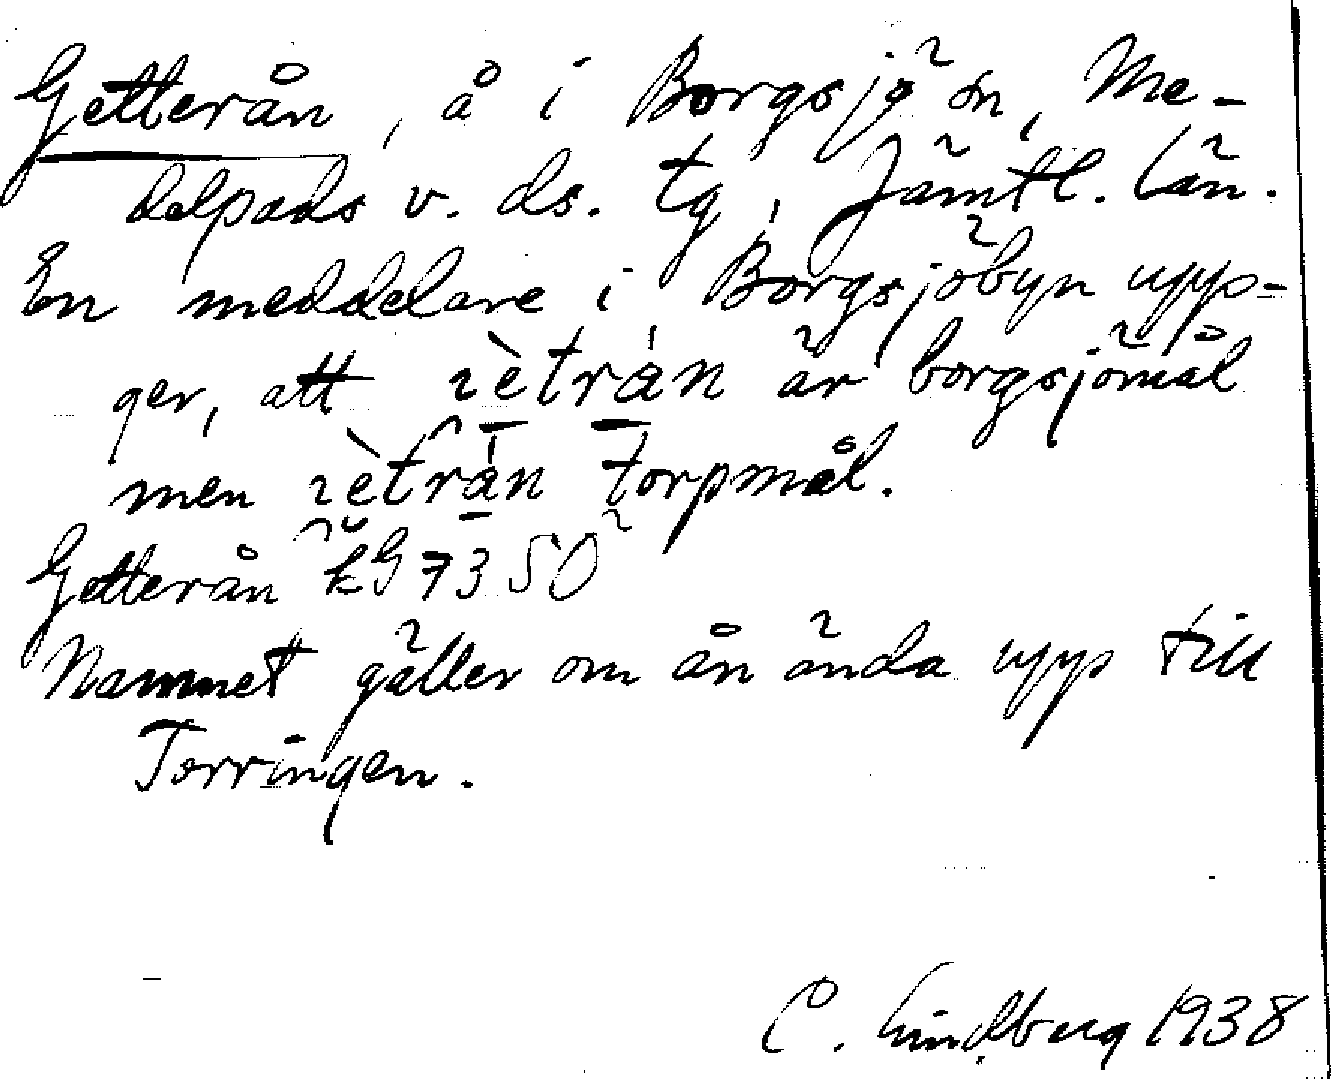 Getterån, å i Borgsjö sn, Me-
delpads v. ds. tg, Jämtl. län.
En meddelare i Borgsjöbyn upp-
ger, att är borgsjömål
men torpmål.
Getterån kG 7350
Namnet gäller om ån ända upp till
Torringen.
C. Lindberg 1938